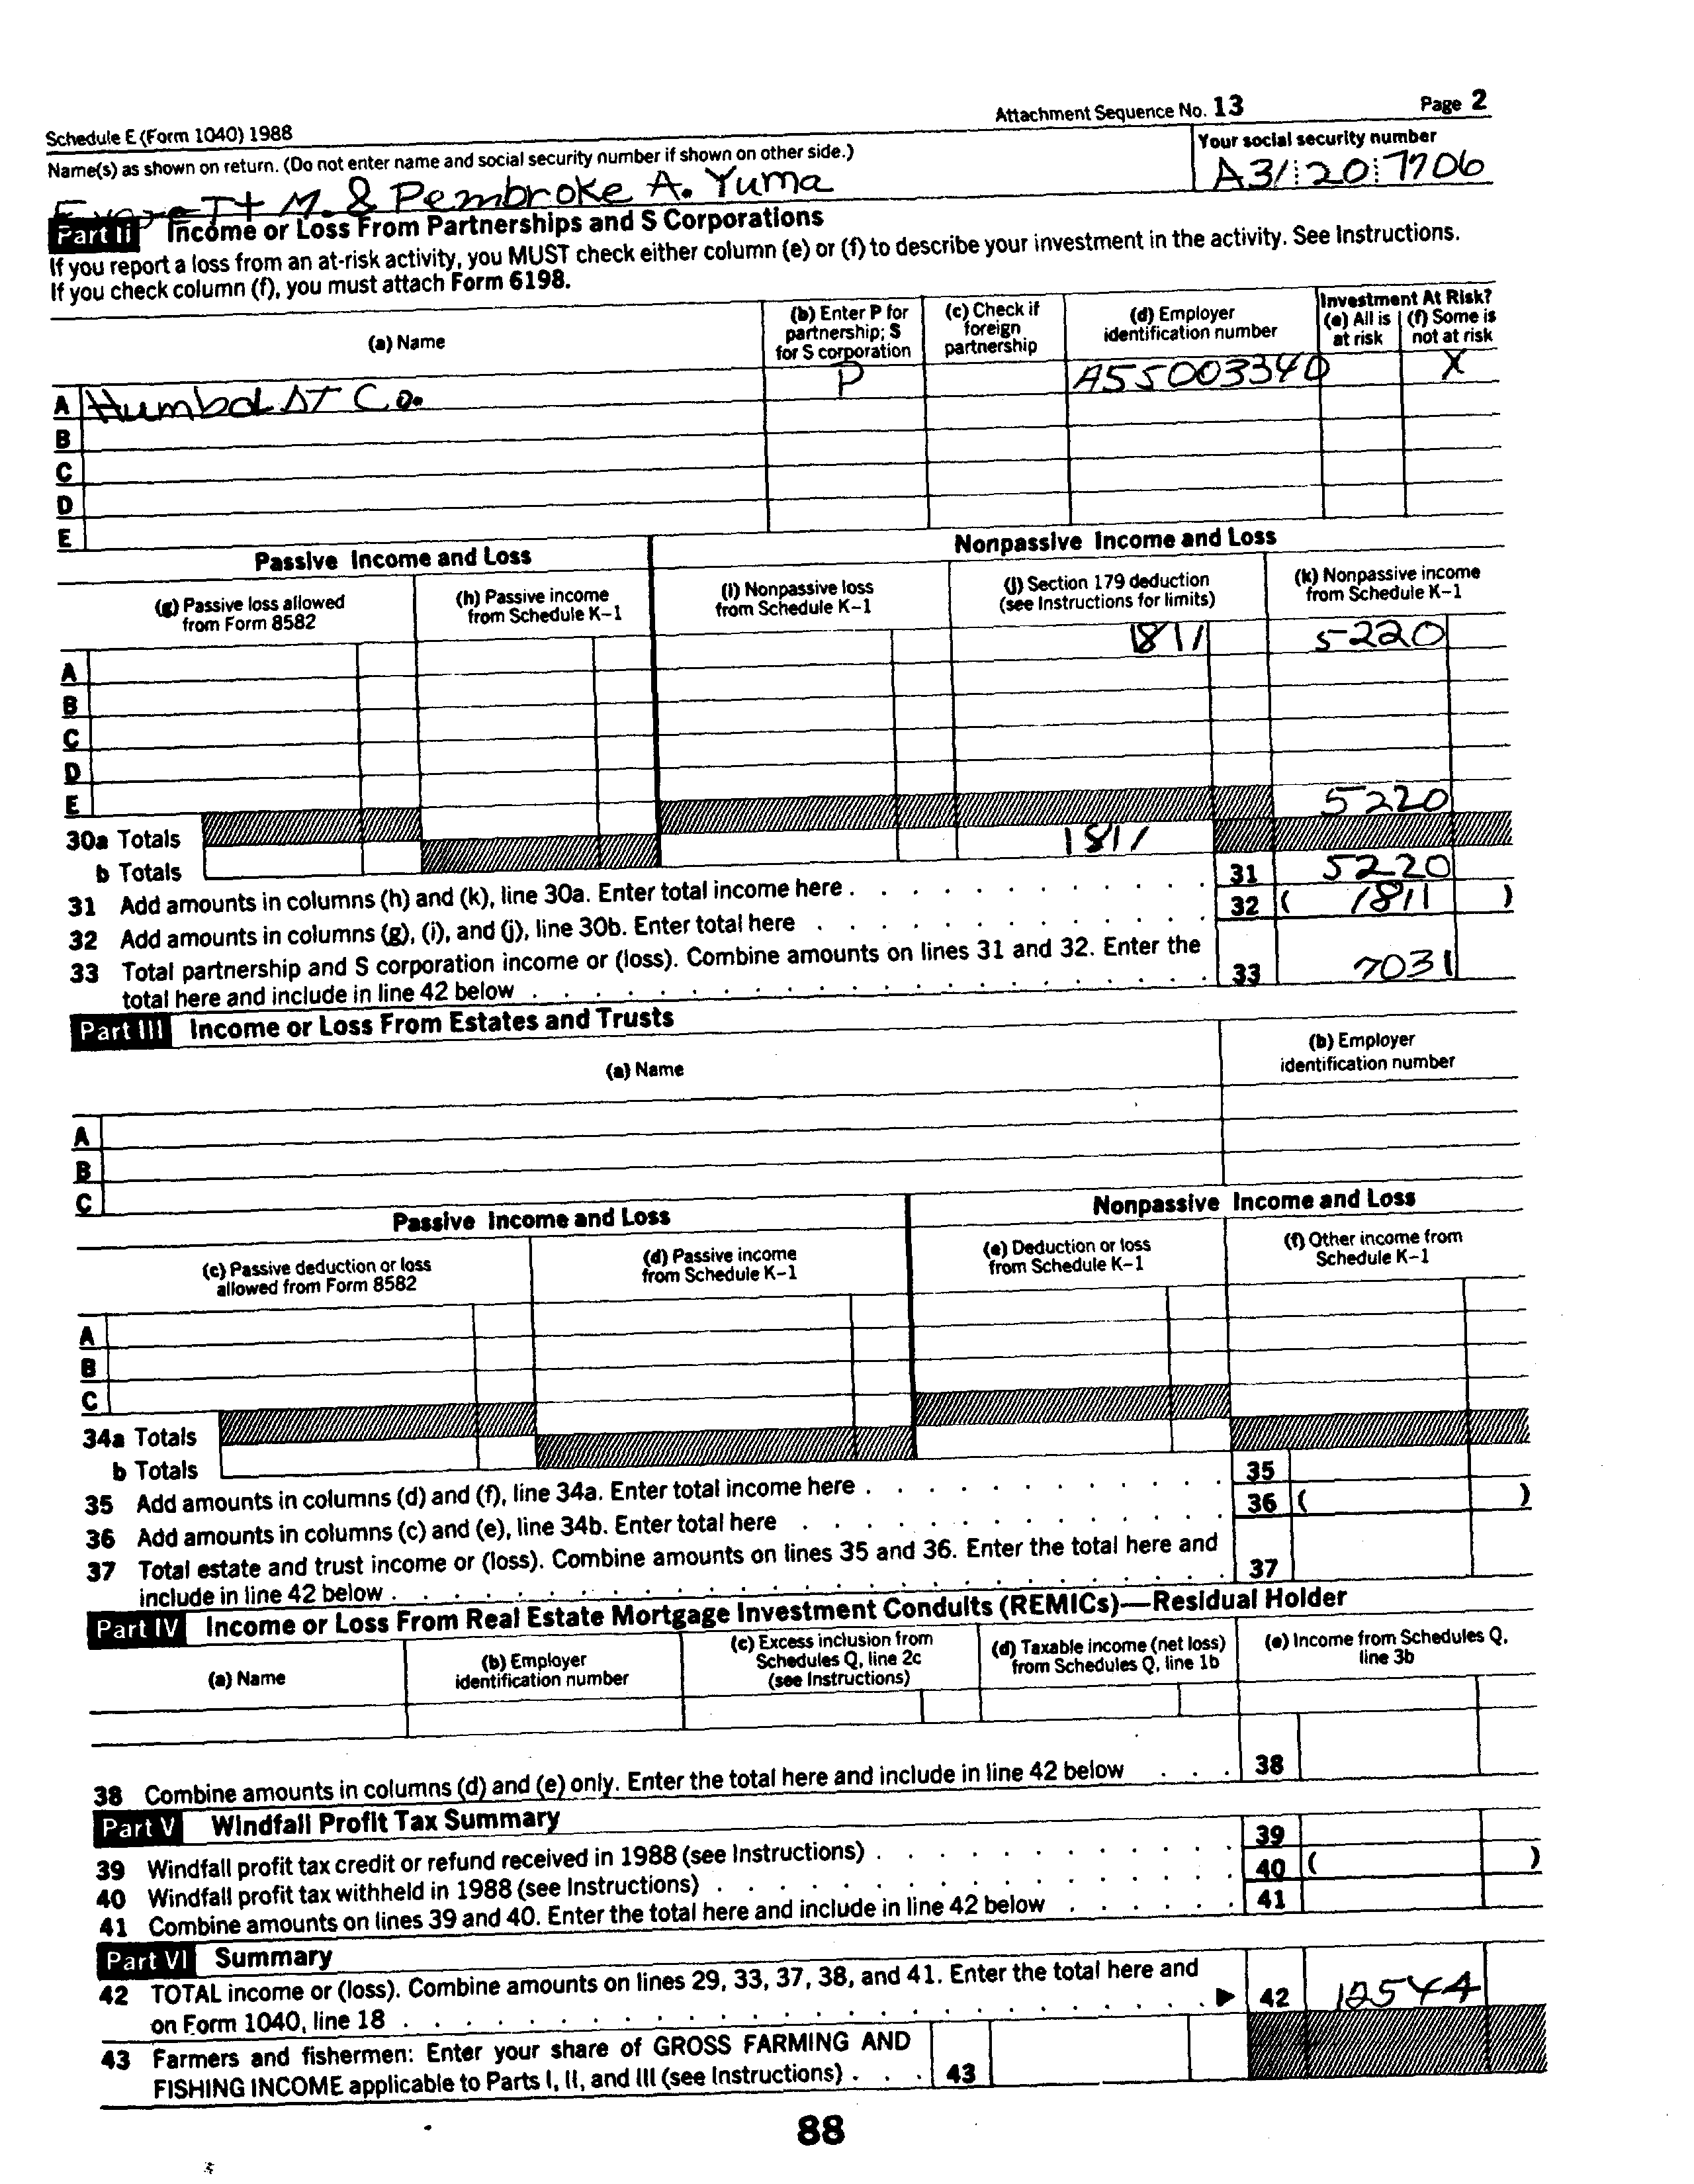 Schedule E (Form 1040) 1988 Attachment Sequence No. 13 Page 2
Name(s) as shown on return. (Do not enter name and social security number if shown on other side.) Your social security number
M. & Pembroke A. Yuma A31 20 7706
Part II Income or Loss From Partnerships and S Corporations
If you report a loss from an at-risk activity, you MUST check either column (e) or (f) to describe your investment in the activity. See Instructions.
If you check column (f), you must attach Form 6198.
(a) Name (b) Enter P for partnership; S for S corporation (c) Check if foreign partnership (d) Employer identification number Investment At Risk? (e) All is at risk (f) Some is not at risk
A HumboLDT Co. P A55003340 X
B
C
D
E
Passive Income and Loss Nonpassive Income and Loss
(g) Passive loss allowed from Form 8582 (h) Passive income from Schedule K-1 (i) Nonpassive loss from Schedule K-1 (j) Section 179 deduction (see Instructions for limits) (k) Nonpassive income from Schedule K-1
A 1811 5220
B
C
D
E
30a Totals 5220
b Totals 1811
31 Add amounts in columns (h) and (k), line 30a. Enter total income here 31 5220
32 Add amounts in columns (g), (i), and (j), line 30b. Enter total here 32 ( 1811 )
33 Total partnership and S corporation income or (loss). Combine amounts on lines 31 and 32. Enter the
total here and include in line 42 below 33 7031
Part III Income or Loss From Estates and Trusts
(a) Name (b) Employer identification number
A
B
C
Passive Income and Loss Nonpassive Income and Loss
(c) Passive deduction or loss allowed from Form 8582 (d) Passive income from Schedule K-1 (e) Deduction or loss from Schedule K-1 (f) Other income from Schedule K-1
A
B
C
34a Totals
b Totals
35 Add amounts in columns (d) and (f), line 34a. Enter total income here 35
36 Add amounts in columns (c) and (e), line 34b. Enter total here 36 ( )
37 Total estate and trust income or (loss). Combine amounts on lines 35 and 36. Enter the total here and
include in line 42 below 37
Part IV Income or Loss From Real Estate Mortgage Investment Conduits (REMICs)—Residual Holder
(a) Name (b) Employer identification number (c) Excess inclusion from Schedules Q, line 2c (see Instructions) (d) Taxable income (net loss) from Schedules Q, line 1b (e) Income from Schedules Q, line 3b
38 Combine amounts in columns (d) and (e) only. Enter the total here and include in line 42 below 38
Part V Windfall Profit Tax Summary
39 Windfall profit tax credit or refund received in 1988 (see Instructions) 39
40 Windfall profit tax withheld in 1988 (see Instructions) 40 ( )
41 Combine amounts on lines 39 and 40. Enter the total here and include in line 42 below 41
Part VI Summary
42 TOTAL income or (loss). Combine amounts on lines 29, 33, 37, 38, and 41. Enter the total here and
on Form 1040, line 18 42 12544
43 Farmers and fishermen: Enter your share of GROSS FARMING AND
FISHING INCOME applicable to Parts I, II, and III (see Instructions) 43
88